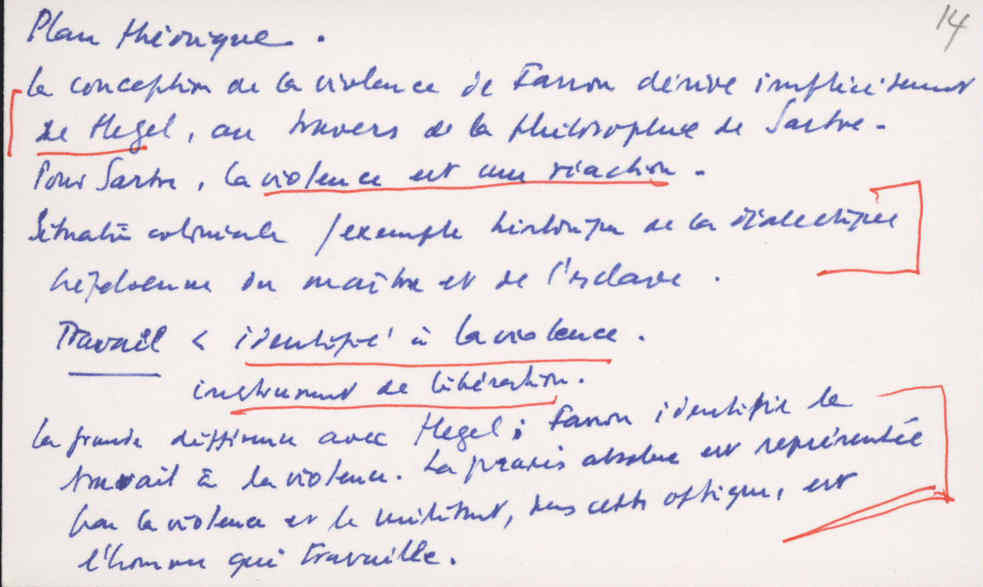 14
Plan théorique.
La conception de la violence de Fanon dérive implicitement
de Hegel, au travers de la philosophie de Sartre.
Pour Sartre, la violence est une réaction.
Situatn coloniale / exemple historique de la dialectique
hégélienne du maître et de l'esclave.
Travail < identifié à la violence.
instrument de libération.
La grande différence avec Hegel ; Fanon identifie le
travail à la violence. La praxis absolue est représentée
par la violence et le militant, dans cette optique, est
l'homme qui travaille.